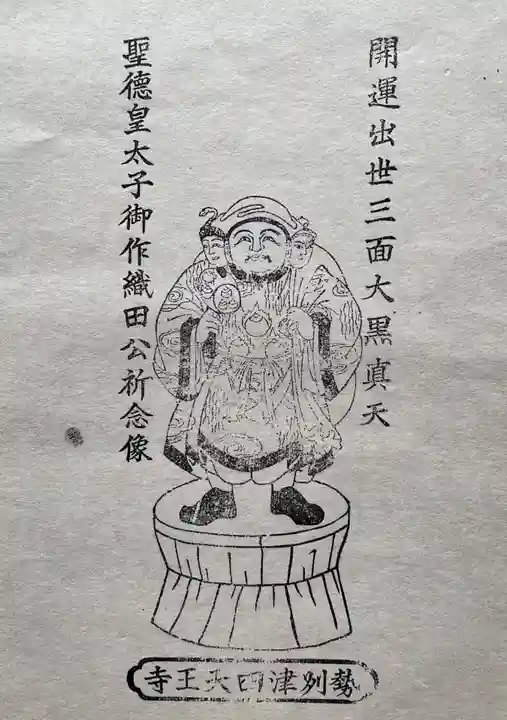 開運出世三面大黒真天
聖德皇太子御作織田公祈念像
勢州津四天王寺